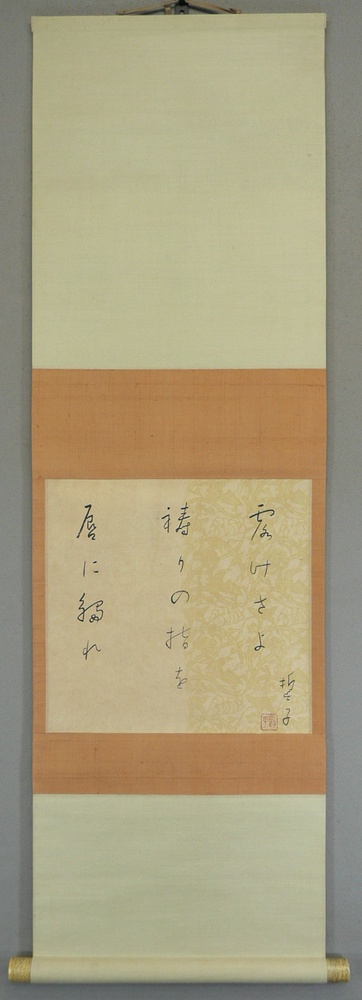 露けさよ
禱りの指を
唇に觸れ
誓子